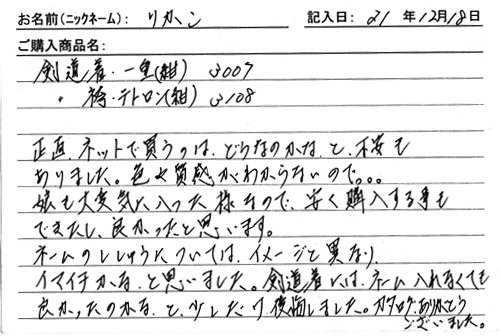 お名前(ニックネーム): りかこ 記入日: 21 年 12月 18日
ご購入商品名:
剣道着・一重(紺) 3007
〃 袴・テトロン(紺) 3108
正直、ネットで買うのは、どうなのかな、と、不安も
ありました。色や質感がわからないので。。。
娘も大変気に入った様なので、安く購入する事も
できたし、良かったと思います。
ネームのししゅうについては、イメージと異なり、
イマイチかな、と思いました。剣道着には、ネーム入れなくても
良かったのかな、と、少しだけ後悔しました。カタログ、ありがとう
ございました。